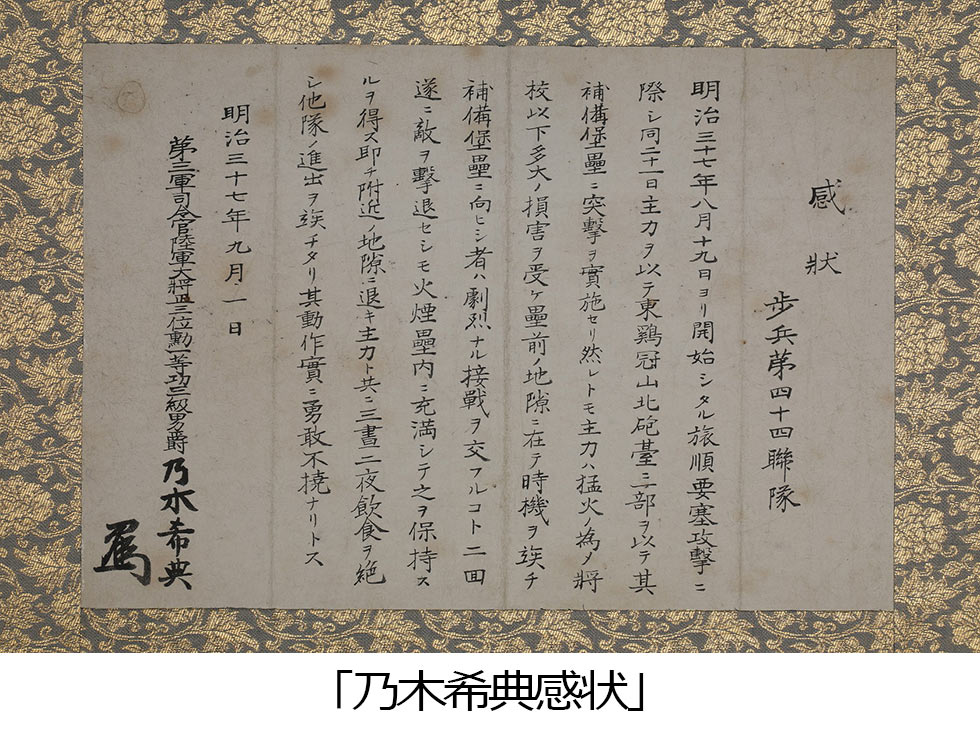 感状
歩兵第四十四聯隊
明治三十七年八月十九日ヨリ開始シタル旅順要塞攻撃ニ
際シ同二十一日主力ヲ以テ東鶏冠山北砲臺ニ一部ヲ以テ其
補備堡壘ニ突撃ヲ實施セリ然レトモ主力ハ猛火ノ為メ将
校以下多大ノ損害ヲ受ケ壘前ノ地隙ニ在テ時機ヲ竢チ
補備堡壘ニ向ヒシ者ハ劇烈ナル接戦ヲ交フルコト二回
遂ニ敵ヲ撃退セシモ火煙壘内ニ充満シテ之ヲ保持ス
ルヲ得ス即チ附近ノ地隙ニ退キ主力ト共ニ三晝二夜飲食ヲ絶
シ他隊ノ進出ヲ竢チタリ其動作實ニ勇敢不撓ナリトス
明治三十七年九月一日
第三軍司令官陸軍大将正三位勲一等功三級男爵乃木希典
「乃木希典感状」